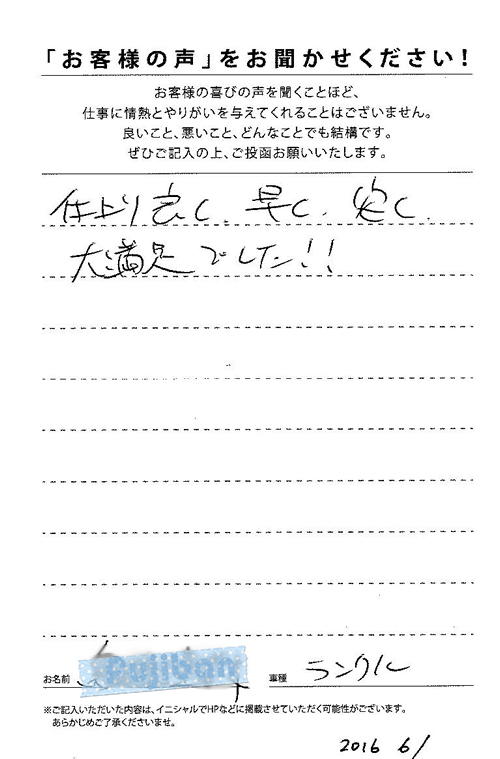 「お客様の声」をお聞かせください！
お客様の喜びの声を聞くことほど、
仕事に情熱とやりがいを与えてくれることはございません。
良いこと、悪いこと、どんなことでも結構です。
ぜひご記入の上、ご投函お願いいたします。
仕上り良く、早く、安く、
大満足でした!!
お名前 Fujiban 車種 ランクル
※ご記入いただいた内容は、イニシャルでHPなどに掲載させていただく可能性がございます。
あらかじめご了承くださいませ。
2016 6/